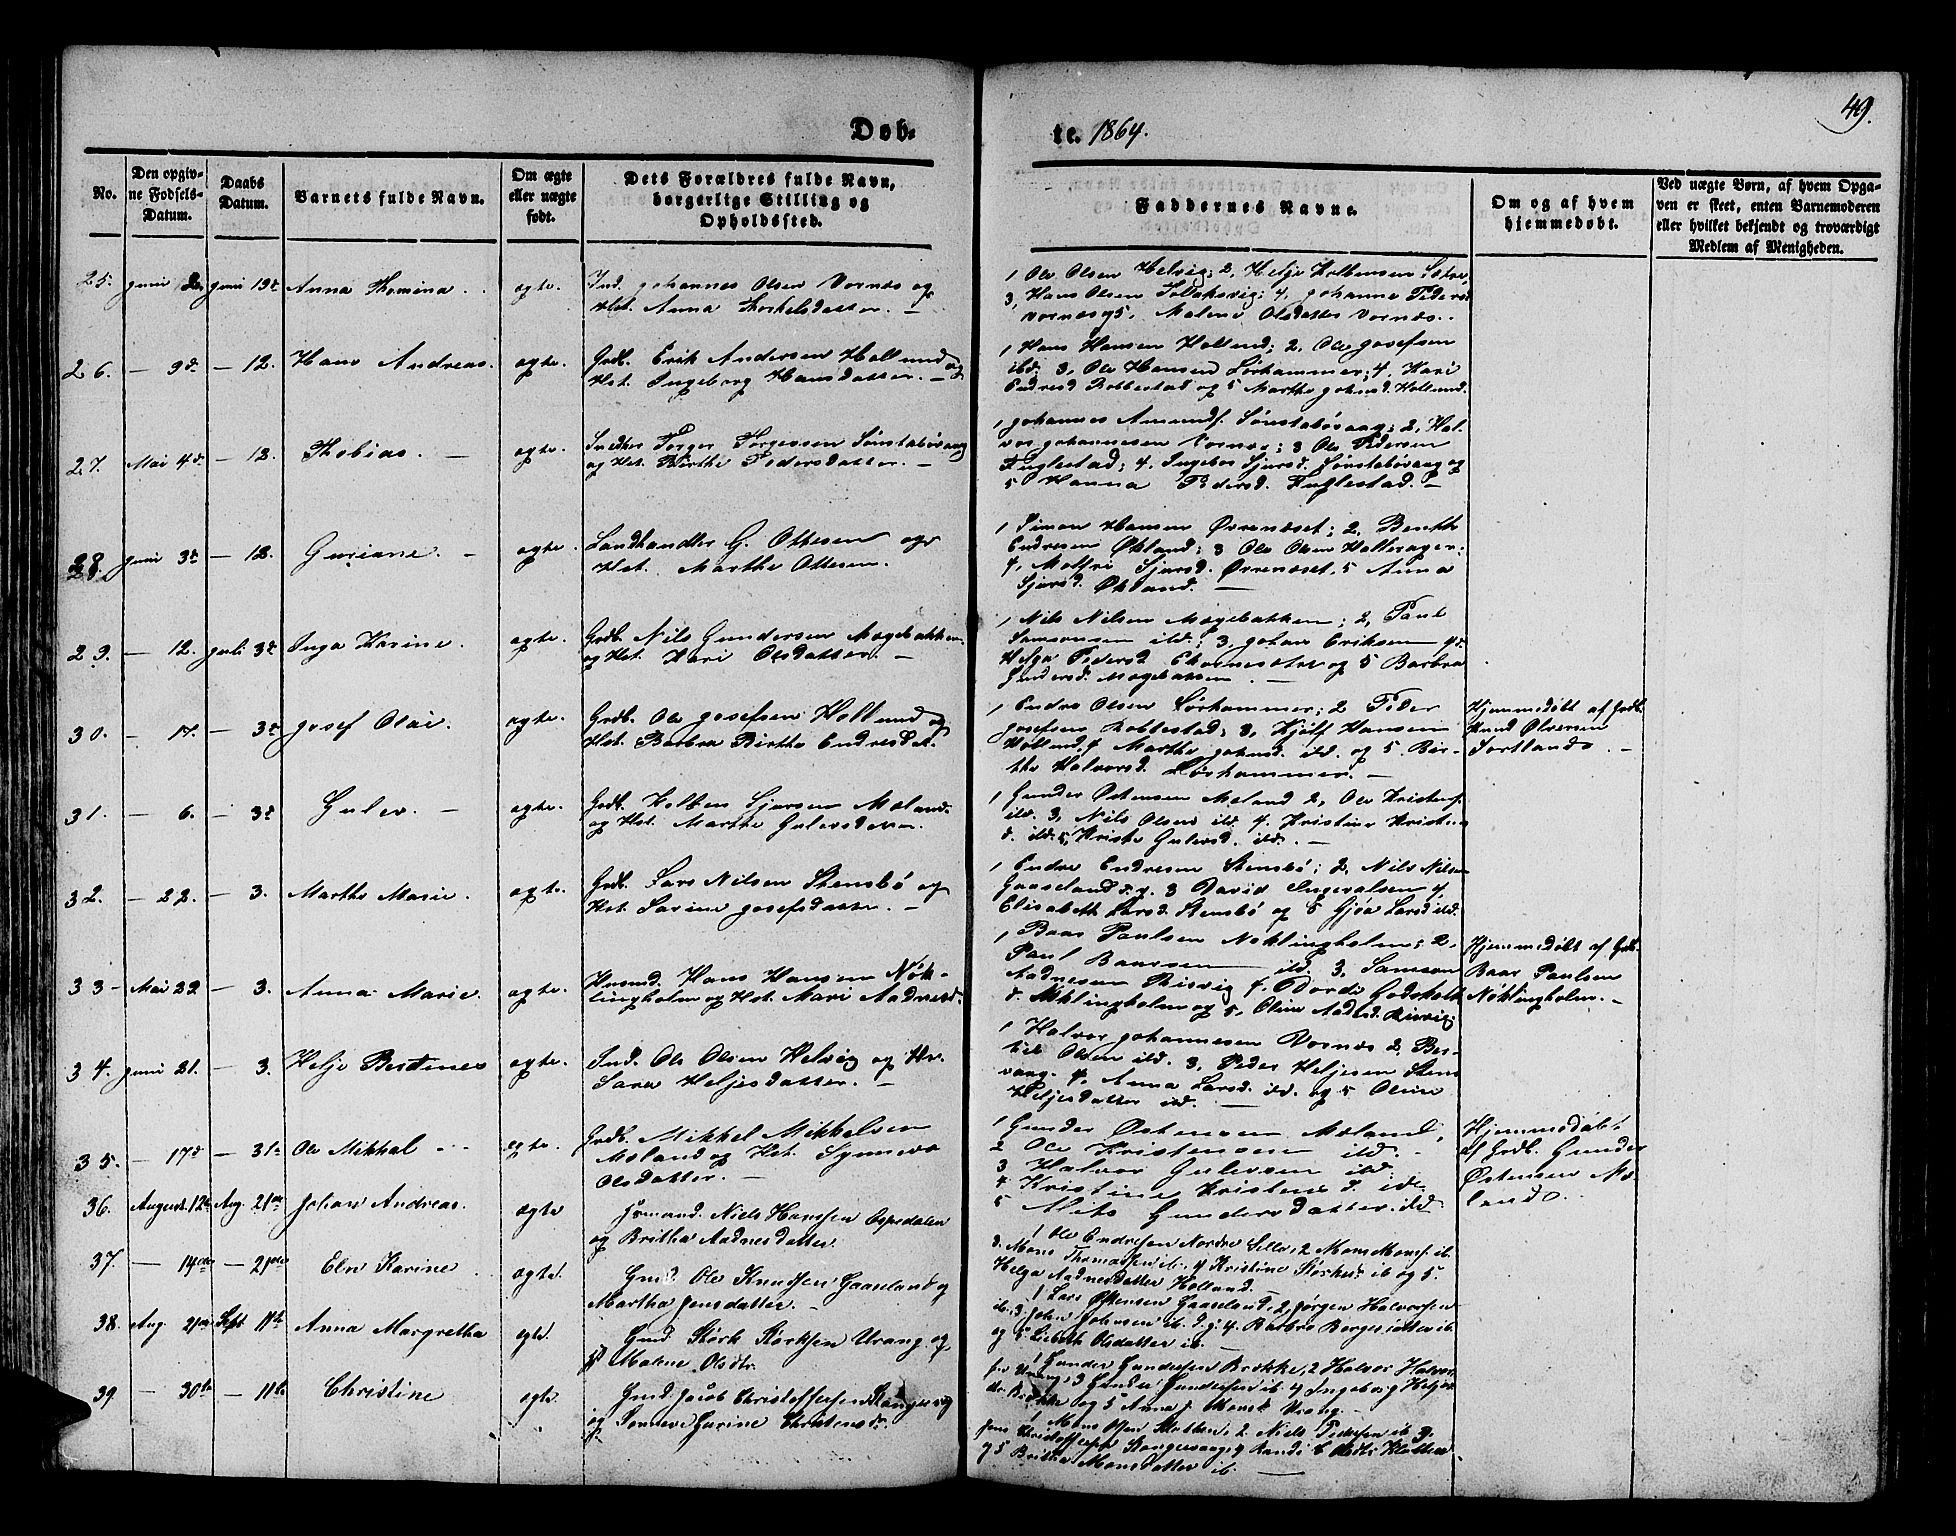 49.
Døb-
te. 1864.
No.
Den opgiv-
ne Fødsels-
Datum.
Daabs
Datum.
Barnets fulde Navn.
Om ægte
eller uægte
født.
Dets Forældres fulde Navn,
borgerlige Stilling og
Opholdssted.
Faddernes Navne.
Om og af hvem
hjemmedøbt.
Ved uægte Børn, af hvem Opga-
ven er skeet, enten Barnemoderen
eller hvilket bekjendt og troværdigt
Medlem af Menigheden.
25. Juni Juni 12t Anna Thomina. ægte. Ind. Johannes Olsen Vornæs og
Hst. Anna Thorkelsdatter. —
1 Ole Olsen Helvig; 2, Helje Kolbensen
3, Hans Olsen 4, Johanne Peders
Vornæs og 5, Malene Olsdatter Vornæs.
26. — 9d. — 12. Hans Andreas. ægte. Grdb. Erik Andersen Hollund og
Hst. Ingeborg Hansdatter. —
1 Hans Hansen Hollund; 2, Ole Josefsen
ibd. 3, Ole Hansen Lørhammer; 4, Kari
Endresd Robbestad og 5 Marthe Johnsd. Hollund.
27. Mai 4d. — 12. Thobias. — ægte. Torger Torgersen Sønstabøvaag
og Hst. Birthe Pedersdatter. —
1 Johannes Amunds. Sønstabøvaag; 2, Hal-
vor Johannesen Vornæs; 3 Ole Pedersen
Fuglestad; 4, Ingebor Sjursd. Sønstabøvaag og
5 Hanna Pedersd. Fuglestad. —
28. Juni 3d — 12. Guriane. — ægte. Landhandler G. Ottesen og
Hst. Marthe Ottesen.
1 Simon Hansen Ørrenæset; 2, Benth
Endresen Økland; 3 Ole Olsen Hallerager;
4, Malfri Sjursd. Ørrenæset, 5 Anna
Sjursd. Økland. —
29. — 12. Juli 3d Inga Karine. ægte. Grdb. Nils Gundersen Mogebakken
og Hst. Kari Olsdatter. —
1 Nils Nilsen Mogebakken; 2, Paul
Samsonsen ibd; 3, Johan Eriksen
Helga Pedersd. og 5 Barbra
Gundersd. Mogebakken. —
30. — 17. — 3d Josef Olai. ægte. Grdb. Ole Josefsen Hollund og
Hst. Barbra Birthe Endresdat.
1 Endre Olsen Lørhammer; 2 Peder
Josefsen Robbestad; 3, Hansen
Hollund, 4 Marthe Johnsd. ibd. og 5. Bir-
the Halvorsd. Lørhammer. —
Hjemmedøbt af Grdb.
Knud Olversen
Sortland. —
31. — 6. — 3d Gulev. — ægte. Grdb. Kolben Sjursen Mæland
og Hst. Marthe Gulevsdatter
1 Gunder Østensen Mæland 2, Ole Kristens.
ibd. 3, Nils Olsen ibd 4. Kristine Kristens
d. ibd. 5, Kriste Gulevsd. ibd. —
32. — 22. — 3. Marthe Marie. ægte. Grdb. Lars Nilsen Stensbø og
Hst. Sarine Josefsdatter. —
1 Endre Endresen Stensbø; 2, Nils Nilsen
Gaaseland d.y. 3 David Ingevalsen 4.
Elisabeth Larsd. Stensbø og 5 Gjøa Larsd ibd.
33 — Mai 22. — 3. Anna Marie. ægte. Husmd. Hans Hansen Nøk-
lingholm og Hst. Mari Aadnesd.
1 Baar Paulsen Nøklingholm; 2.
Paul Baarsen ibd. 3, Samson
Aadnesen Risvig 4. Dordi Godskalk
d. Nøklingholm og 5, Oline Aadnesd. Risvig
Hjemmedøbt af Grdb.
Baar Paulsen
Nøklingholm. —
34. Juni 21. — 3. Helje Bertinus ægte. Ind. Ole Olsen Helvig og Hst.
Sara Heljesdatter. —
1 Halvor Johannesen Vornæs 2, Ber-
tel Olsen ibd. 3, Peder Heljesen Stens
vaag. 4, Anna Larsd. ibd. og 5 Oline
Heljesdatter ibd. —
35. — 17d — 31te Ole Mikkal — ægte. Grdb. Mikkel Mikkelsen
Mæland og Hst. Synneva
Olsdatter. —
1 Gunder Østensen Mæland,
2 Ole Kristensen ibd. —
3 Halvor Gulevsen ibd.
4 Kristine Kristens d. ibd
5 Mits Gundersdatter ibd
Hjemmedøbt
af Grdb. Gunder
Østensen Mæ
land.
36. August. 12te Aug. 21de Johan Andreas. ægte Niels Hanssen Ospedalen
og Britha Aadnesdatter
1 Ole Endressen Nordre Lille, 2 Mons Monss. ib.
3. Mons Thomassen ib. 4 Kristine Størksd: ib og 5.
Helga Aadnesdatter Holland.
37. — 14de — 21de Eln Karine ægte. Gmd. Ole Knudssen Gaaseland og
Martha Jensdatter. —
1 Lars Østensen Gaaseland, 2, Jørgen Halvorsen
ib. 3. John Johnsen ib. d.y. 4. Barbro Borgesdatter ib.
og 5. Lisbeth Olsdatter ib. —
38. Aug. 21de Sept 11te Anna Margretha ægte. Gmd Størk Størksen Urang og
Malene Olsdtr.
1 Gunder Gundersen Brække, 2 Halvor Halvor
sen Urang, 3 Gunder Gundersen ib 4 Ingeborg Heljes
dr. Brække og 5 Anna J. Monsd. Urang. —
39 — 30te — 11te Christine ægte. Gmd. Jacob Christoffersen Stangesvaag
og Synneve Gurine Christensdr.
1 Mons Olsen Kløtten, 2 Niels Pedersen ib 3.
Jens Christoffersen Stangesvaag, 4 Randi E. Olsdtr Kløtten
og 5 Britha Monsdatter ib. —